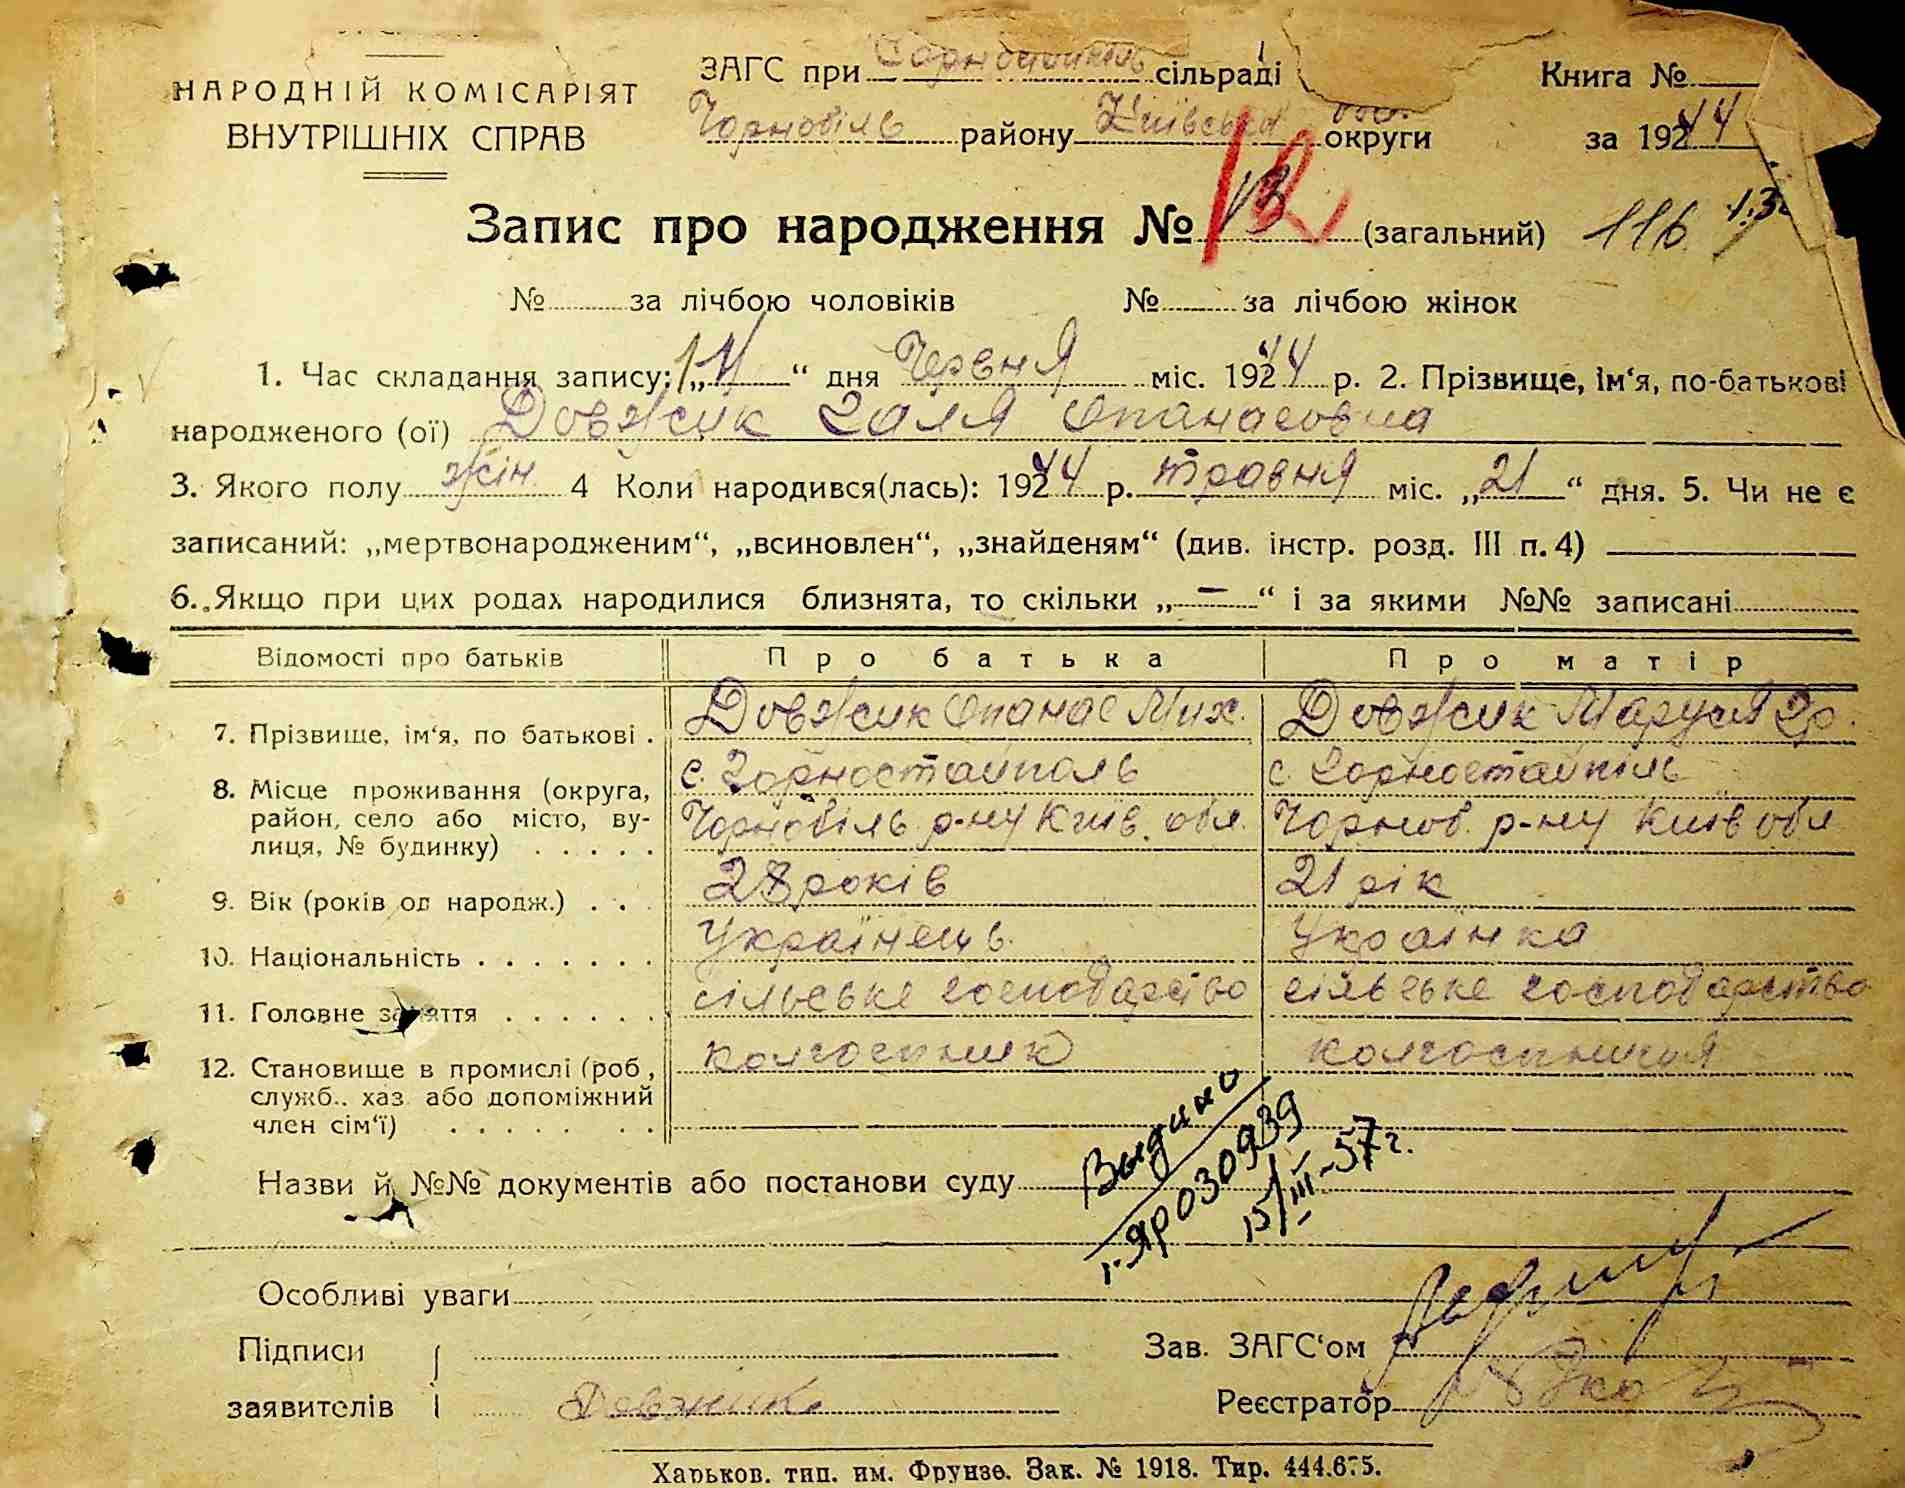 НАРОДНІЙ КОМІСАРІЯТ
ВНУТРІШНІХ СПРАВ
ЗАГС при Горностайпіль сільраді
Чорнобіль району Київська обл. округи
Книга №
за 19244
Запис про народження № 13 12 (загальний) 116
№ за лічбою чоловіків № за лічбою жінок
1. Час складання запису: „14“ дня Червня міс. 19244 р. 2. Прізвище, ім‘я, по-батькові
народженого (ої) Довжик Галя Опанасовна
3. Якого полу жін. 4 Коли народився(лась): 19244 р. травня міс. „21“ дня. 5. Чи не є
записаний: „мертвонародженим“, „всиновлен“, „знайденям“ (див. інстр. розд. III п. 4)
6. Якщо при цих родах народилися близнята, то скільки „—“ і за якими №№ записані
Відомості про батьків Про батька Про матір
7. Прізвище, ім‘я, по батькові . Довжик Опанас Мих. Довжик Маруся Гр.
8. Місце проживання (округа, с. Горностайполь с. Горностайпіль
район, село або місто, ву- Чорнобіль р-ну Київ. обл. Чорноб. р-ну Київ обл
лиця, № будинку) . . . . .
9. Вік (років од народж.) . . . 28 років 21 рік
10. Національність . . . . . . . Українець. Українка
11. Головне заняття . . . . . . сільське господарство сільське господарство
12. Становище в промислі (роб, колгоспник колгоспниця
служб.. хаз. або допоміжний
член сім‘ї) . . . . . . .
Назви й №№ документів або постанови суду
Выдано
г. ЯР 030939
15/III-57 г.
Особливі уваги
Підписи
заявителів Довжик
Зав. ЗАГС‘ом
Реєстратор
Харьков. тип. им. Фрунзе. Зак. № 1918. Тир. 444.675.